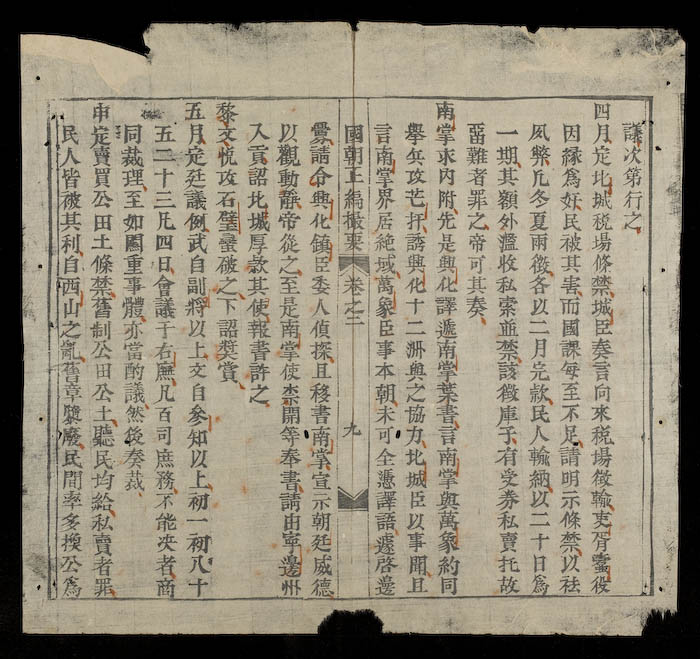 議次第行之
四月定北城税場條禁城臣奏言向來税場徵輸吏胥蠹役
因緣爲奸民被其害而國課每至不足請明示條禁以祛
夙弊凡冬夏兩徵各以二月完款民人輸納以二十日爲
一期其額外濫收私索並禁該徵庫子有受券私賣托故
留難者罪之帝可其奏
南掌求内附先是興化譯遞南掌葉書言南掌與萬象約同
舉兵攻芒抨誘興化十二洲與之協力北城臣以事聞且
言南掌界居絶域萬象臣事本朝未可全憑譯語遽啓邊
國朝正編撮要 卷之二 九
釁請令興化鎮臣委人偵探且移書南掌宣示朝廷威德
以觀動静帝從之至是南掌使禁開等奉書請由寧邊州
入貢詔北城厚款其使報書許之
黎文悦攻石壁蠻破之下詔奬賞
五月定廷議例武自副將以上文自參知以上初一初八十
五二十三凡四日會議于右廡凡百司庶務不能决者商
同裁理至如關重事體亦當酌議然後奏裁
申定賣買公田土條禁舊制公田公土聽民均給私賣者罪
民人皆被其利自西山之亂舊章隳廢民間率多換公爲